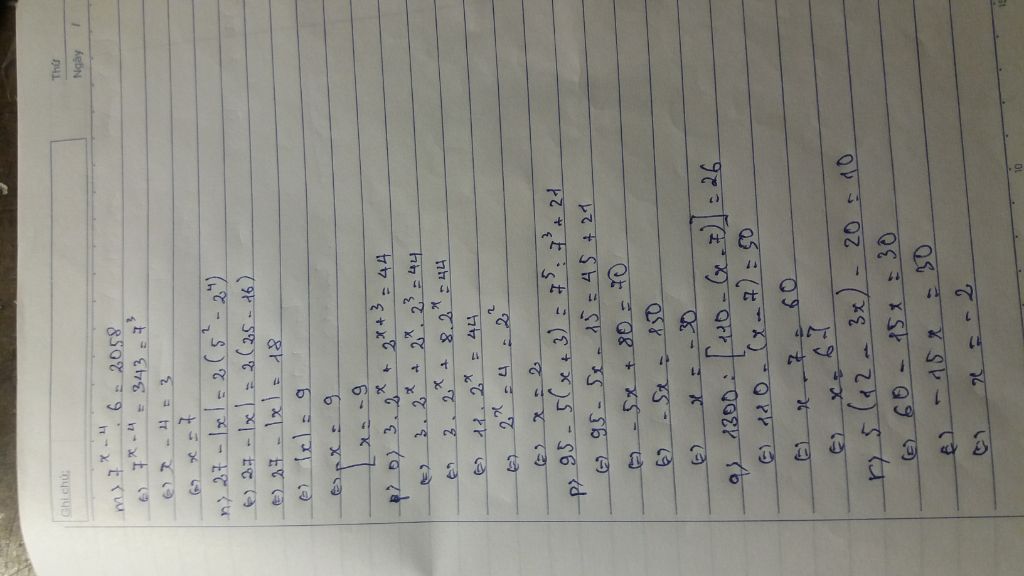 Thứ
Ngày /
Ghi chú:
m) 7^{x-4} . 6 = 2058
(=) 7^{x-4} = 343 = 7³
(=) x - 4 = 3
(=) x = 7
n) 27 - |x| = 2(5² - 2⁴)
(=) 27 - |x| = 2(25 - 16)
(=) 27 - |x| = 18
(=) |x| = 9
(=) [x = 9
[x = -9
o) 3.2^x + 2^{x+3} = 44
(=) 3.2^x + 2^x.2³ = 44
(=) 3.2^x + 8.2^x = 44
(=) 11.2^x = 44
(=) 2^x = 4 = 2²
(=) x = 2
p) 95 - 5(x+3) = 7⁵ : 7³ + 21
(=) 95 - 5x - 15 = 45 + 21
(=) -5x + 80 = 70
(=) -5x = 150
(=) x = -30
q) 1300 : [110 - (x-7)] = 26
(=) 110 - (x-7) = 50
(=) x - 7 = 60
(=) x = 67
r) 5(12 - 3x) - 20 = 10
(=) 60 - 15x = 30
(=) -15x = 30
(=) x = -2
10